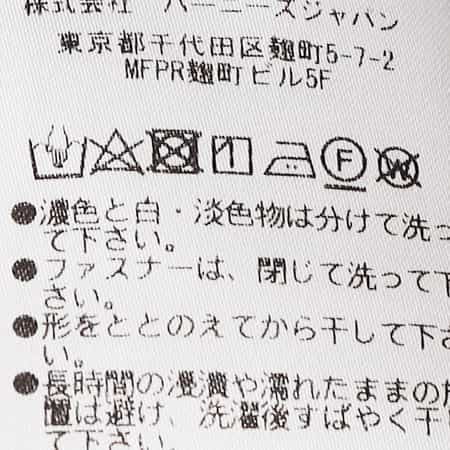 株式会社 バーニーズジャパン
東京都千代田区麹町5-7-2
MFPR麹町ビル5F
F W
●濃色と白・淡色物は分けて洗っ
て下さい。
●ファスナーは、閉じて洗って下
さい。
●形をととのえてから干して下さ
い。
●長時間の浸漬や濡れたままの放
置は避け、洗濯後すばやく干し
て下さい。